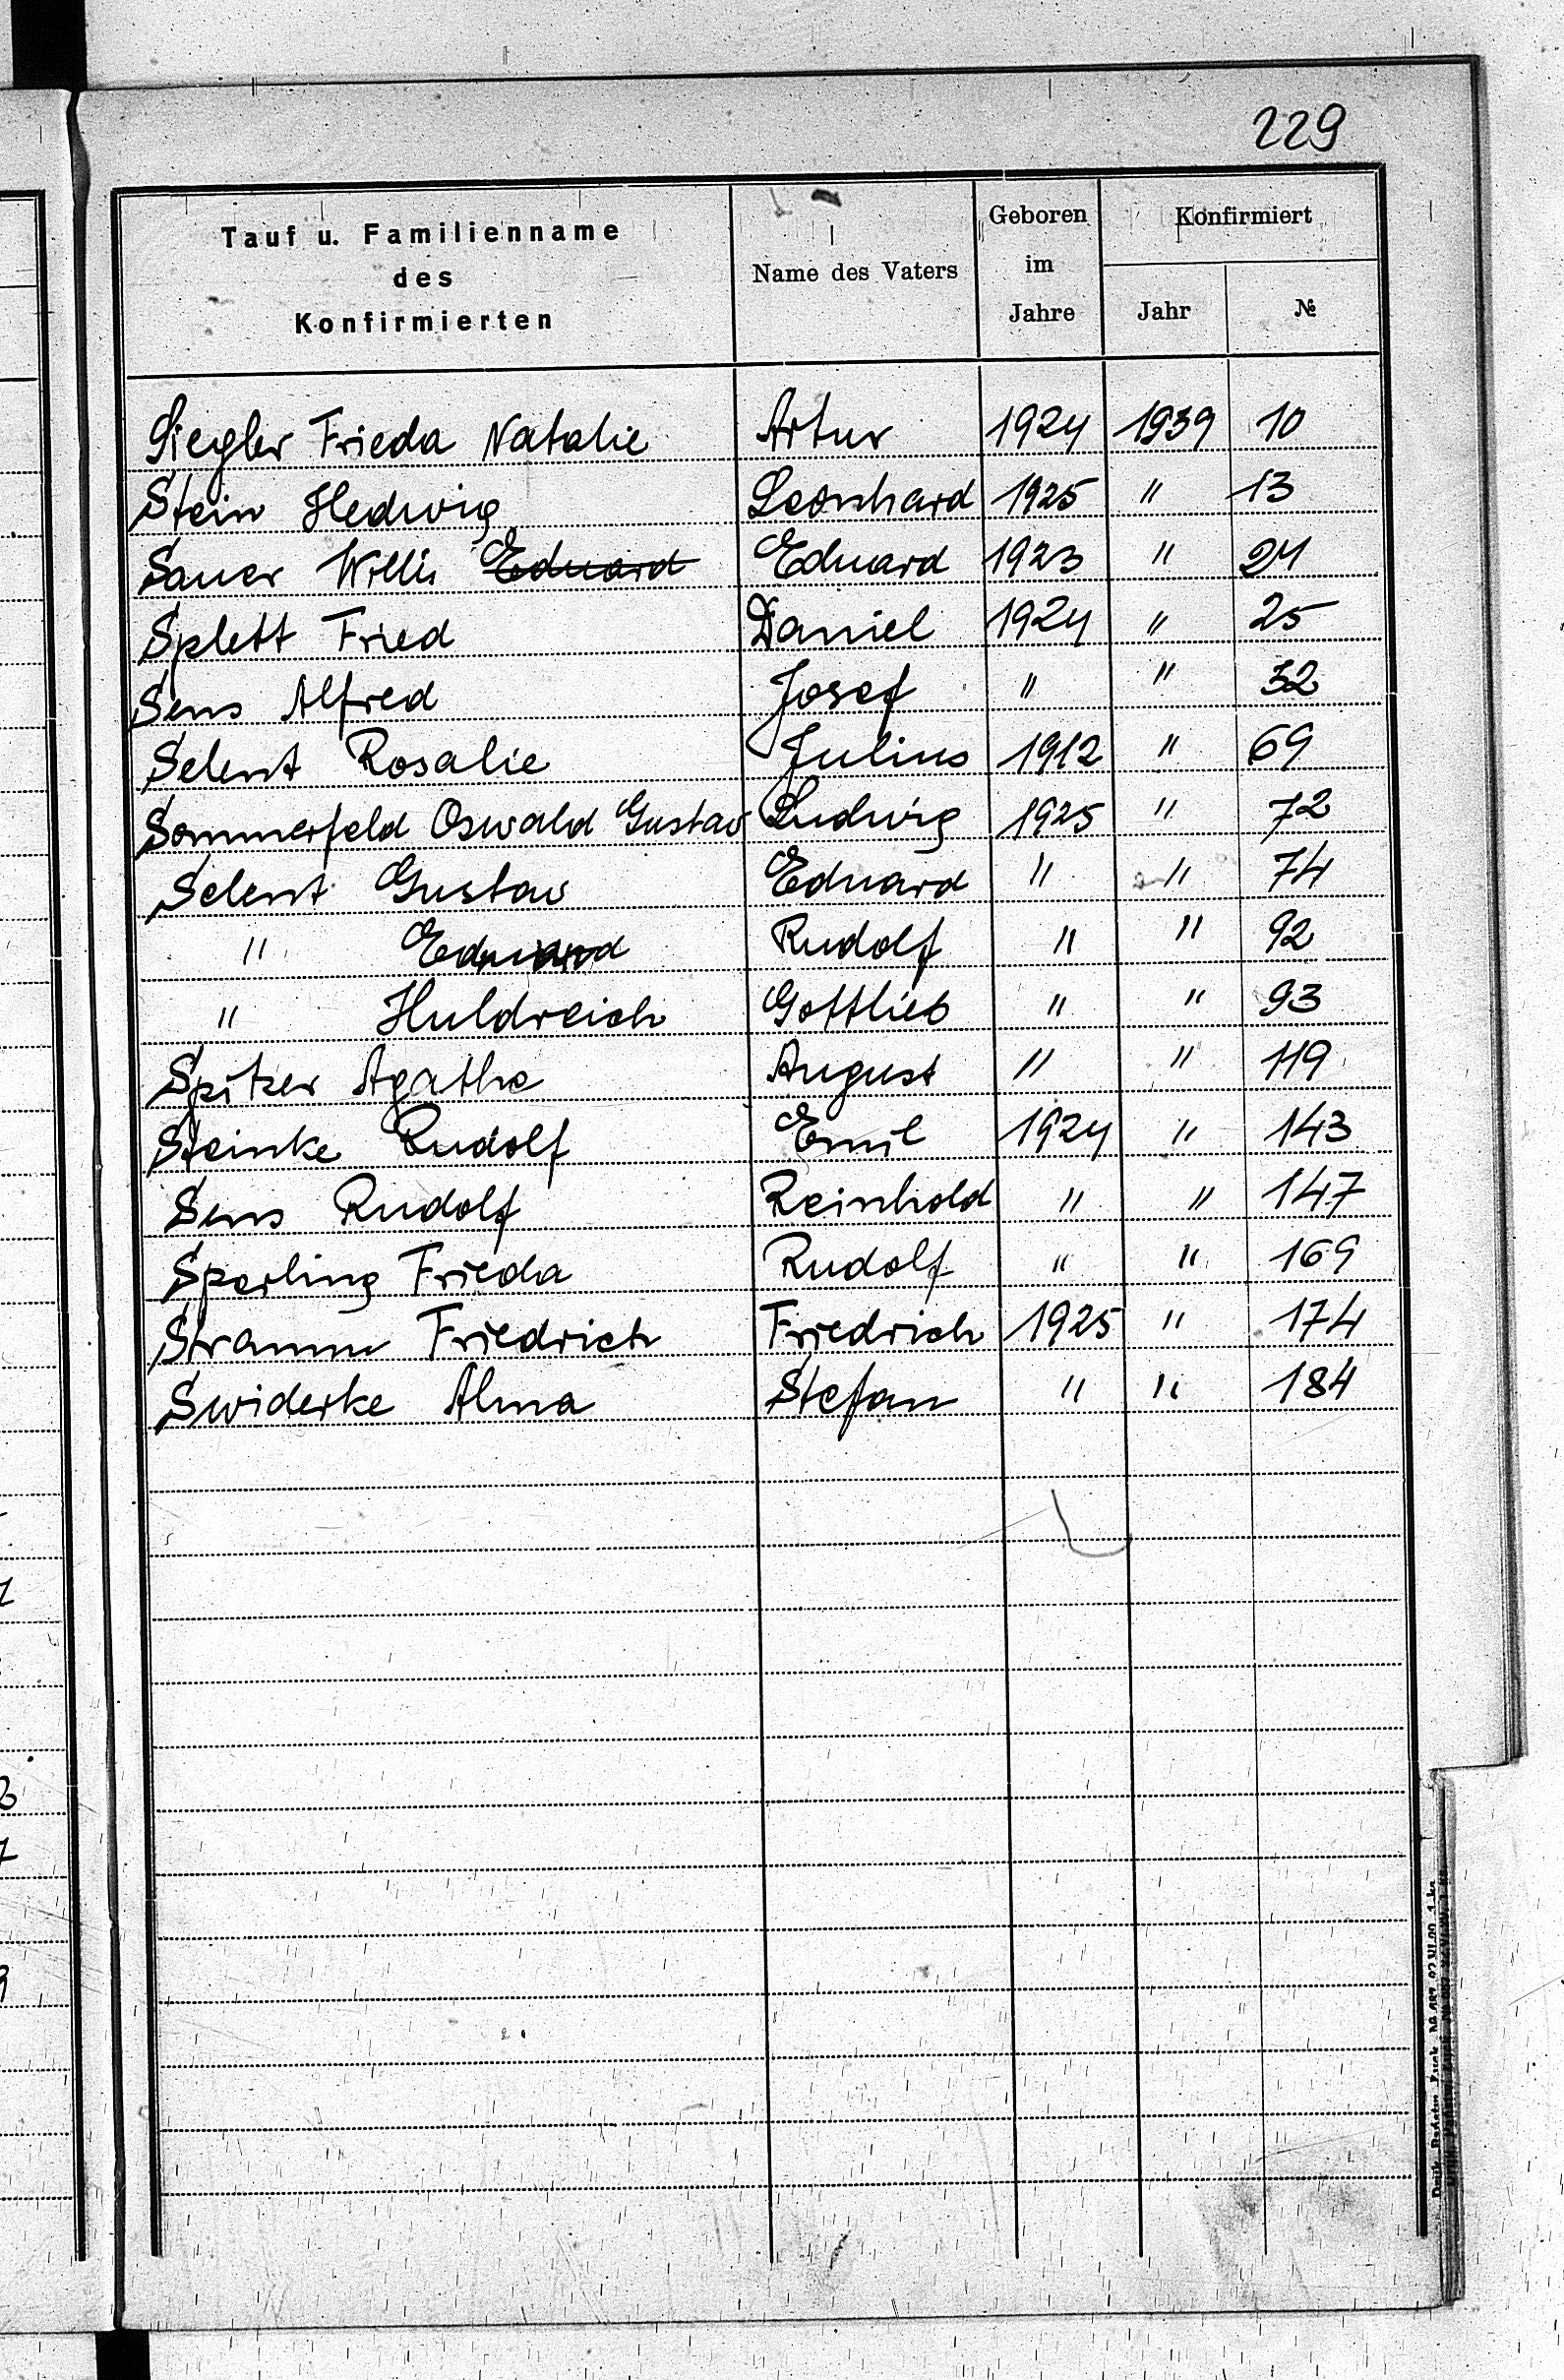 229
Tauf u. Familienname des Konfirmierten | Name des Vaters | Geboren im Jahre | Konfirmiert Jahr | №
Siegler Frieda Natalie Artur 1924 1939 10
Stein Hedwig Leonhard 1925 " 13
Sauer Willi Eduard Eduard 1923 " 24
Splett Fried Daniel 1924 " 25
Sens Alfred Josef " " 32
Selent Rosalie Julius 1912 " 69
Sommerfeld Oswald Gustav Ludwig 1925 " 72
Selent Gustav Eduard " " 74
" Eduard Rudolf " " 92
" Huldreich Gottlieb " " 93
Spitzer Agathe August " " 119
Steinke Rudolf Emil 1924 " 143
Sens Rudolf Reinhold " " 147
Sperling Frieda Rudolf " " 169
Stramm Friedrich Friedrich 1925 " 174
Swiderke Alma Stefan " " 184